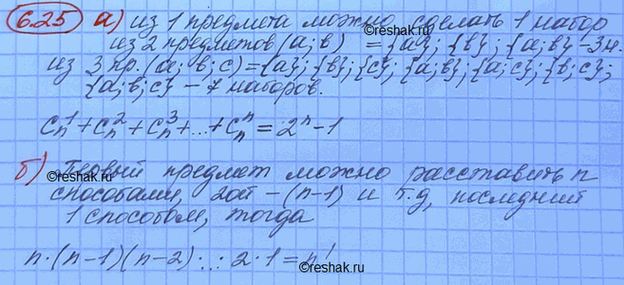 6.25 а) из 1 предмета можно сделать 1 набор
из 2 предметов (a; b) = {a}; {b}; {a; b} - 3 н.
из 3 пр. (a; b; c) = {a}; {b}; {c}; {a; b}; {a; c}; {b; c};
{a; b; c} - 7 наборов.
C_n^1 + C_n^2 + C_n^3 + ... + C_n^n = 2^n - 1
б) Первый предмет можно расставить n
способами, 2ой - (n-1) и т.д, последний
1 способом, тогда
©reshak.ru
n · (n-1)(n-2) ... 2 · 1 = n!
©reshak.ru